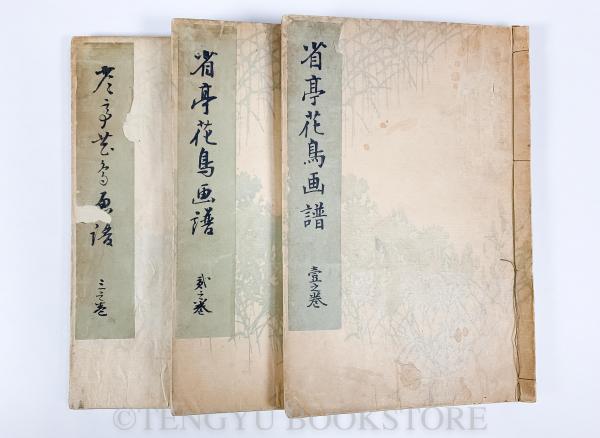 省亭花鳥画譜
壹之巻
省亭花鳥画譜
貳之巻
省亭花鳥画譜
三之巻
©TENGYU BOOKSTORE